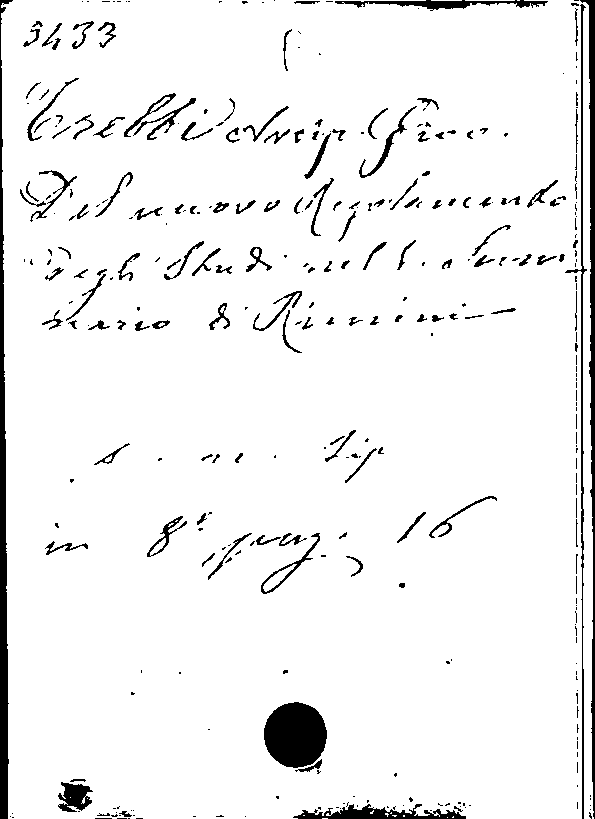 3433
Trebbi Arcip. Gioo.
Del nuovo Regolamento
degli Studi nel V. Semi
nario di Rimini
s. n. tip
in 8º pag. 16